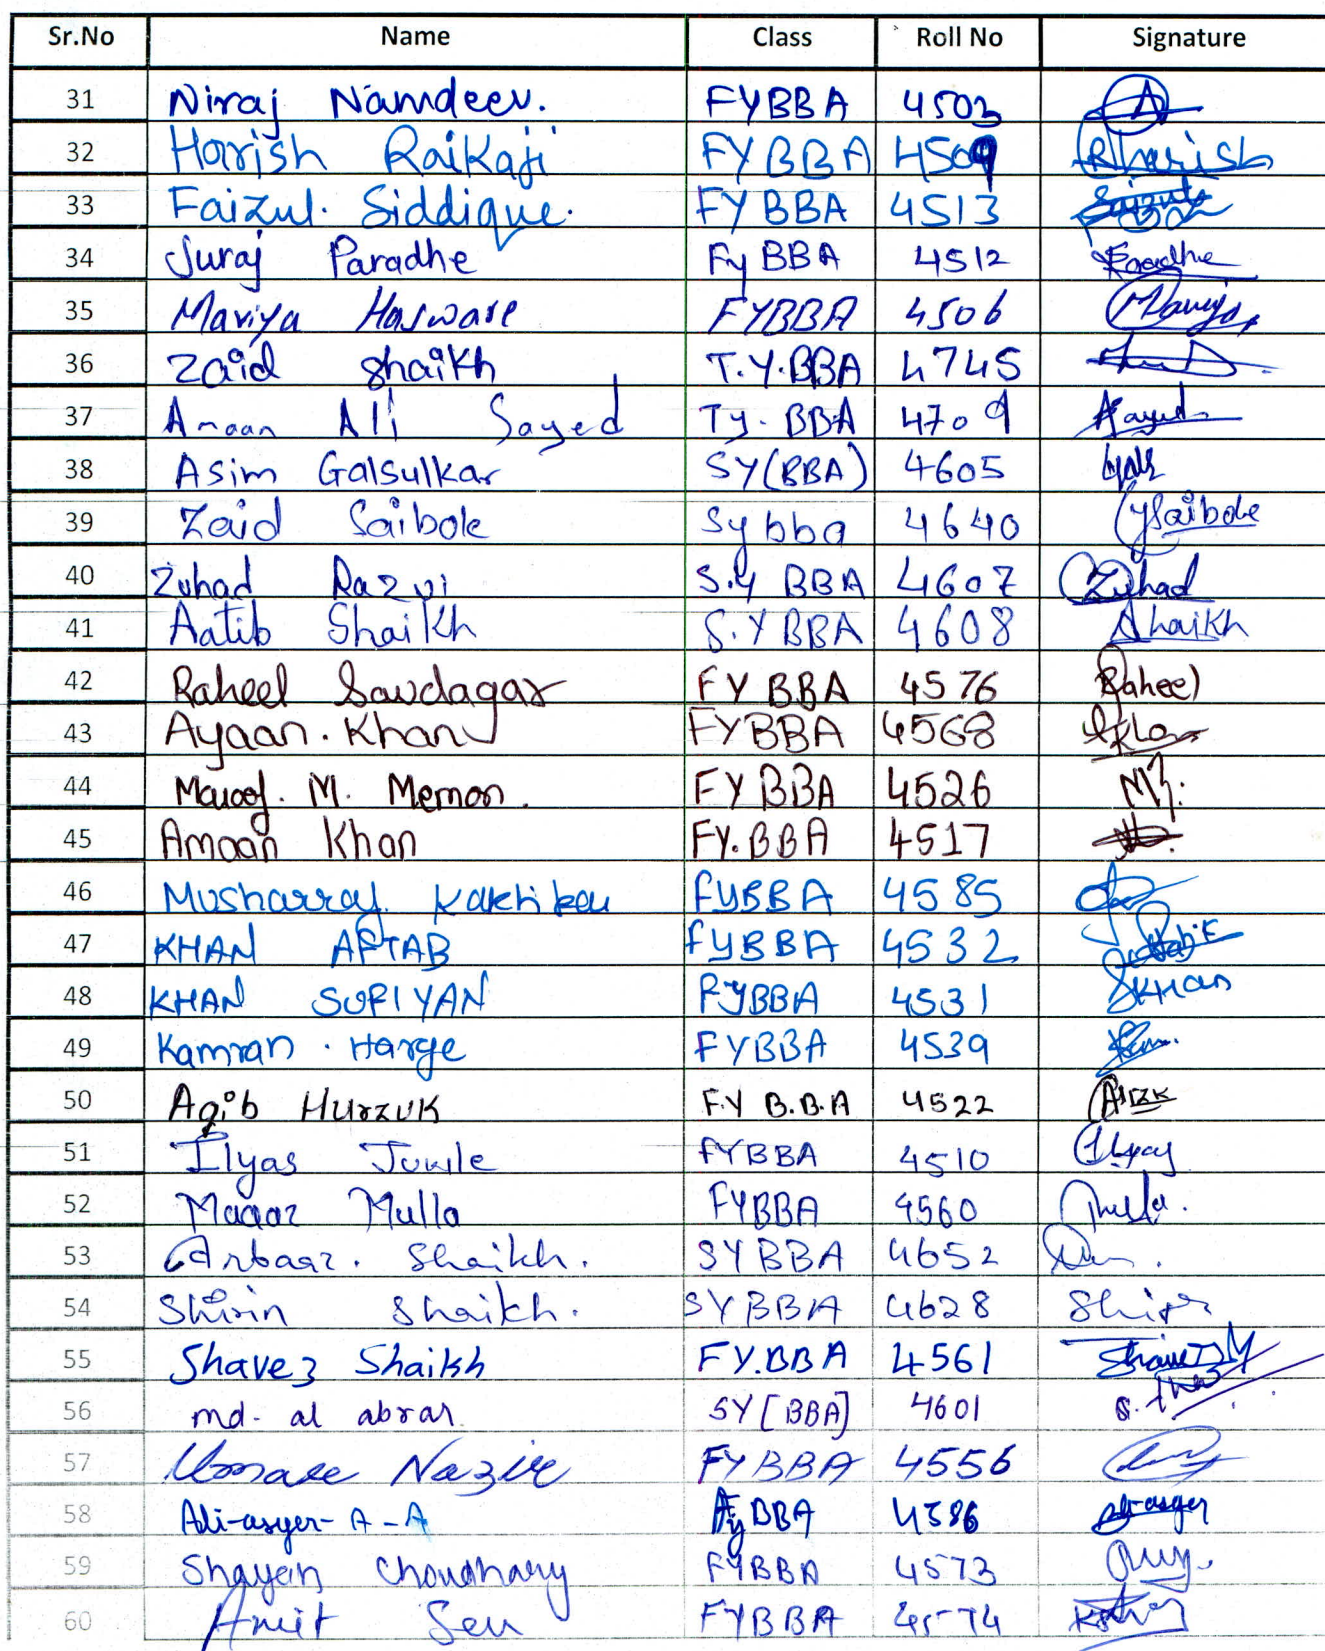 Sr.No Name Class Roll No Signature
31 Niraj Namdeev. FYBBA 4503
32 Harish Raikaji FYBBA 4509 Rharish
33 Faizul. Siddique. FYBBA 4513
34 Suraj Paradhe Fy BBA 4512 Paradhe
35 Mariya Hasware FYBBA 4506 Mariya
36 Zaid Shaikh T.Y.BBA 4745
37 Amaan Ali Sayed Ty. BBA 4709 Asayed
38 Asim Galsulkar SY(BBA) 4605
39 Zaid Saibole Sybba 4640 Saibole
40 Zuhad Razvi S.y BBA 4607 Zuhad
41 Aatib Shaikh S.Y BBA 4608 Shaikh
42 Raheel Saudagar FY BBA 4576 Raheel
43 Ayaan. Khan FYBBA 4568
44 M. Memon. FY BBA 4526
45 Amaan Khan FY.BBA 4517
46 Musharraf FYBBA 4585
47 KHAN AFTAB FYBBA 4532
48 KHAN SUFIYAN FYBBA 4531 SKHAN
49 Kamran. Harge FYBBA 4539
50 Aqib Hurzuk F.Y B.B.A 4522
51 Ilyas Juwle FYBBA 4510 Ilyas
52 Maaaz Mulla FYBBA 4560 Mulla.
53 Arbaaz. Shaikh. SYBBA 4652
54 Shirin Shaikh. SYBBA 4628
55 Shavez Shaikh FY.BBA 4561
56 md. al abrar SY[BBA] 4601
57 Nazir FYBBA 4556
58 Ali-asger-A-A Fy BBA 4586 Ali-asger
59 Shayan Choudhary FYBBA 4573
60 Amit Sen FYBBA 4574